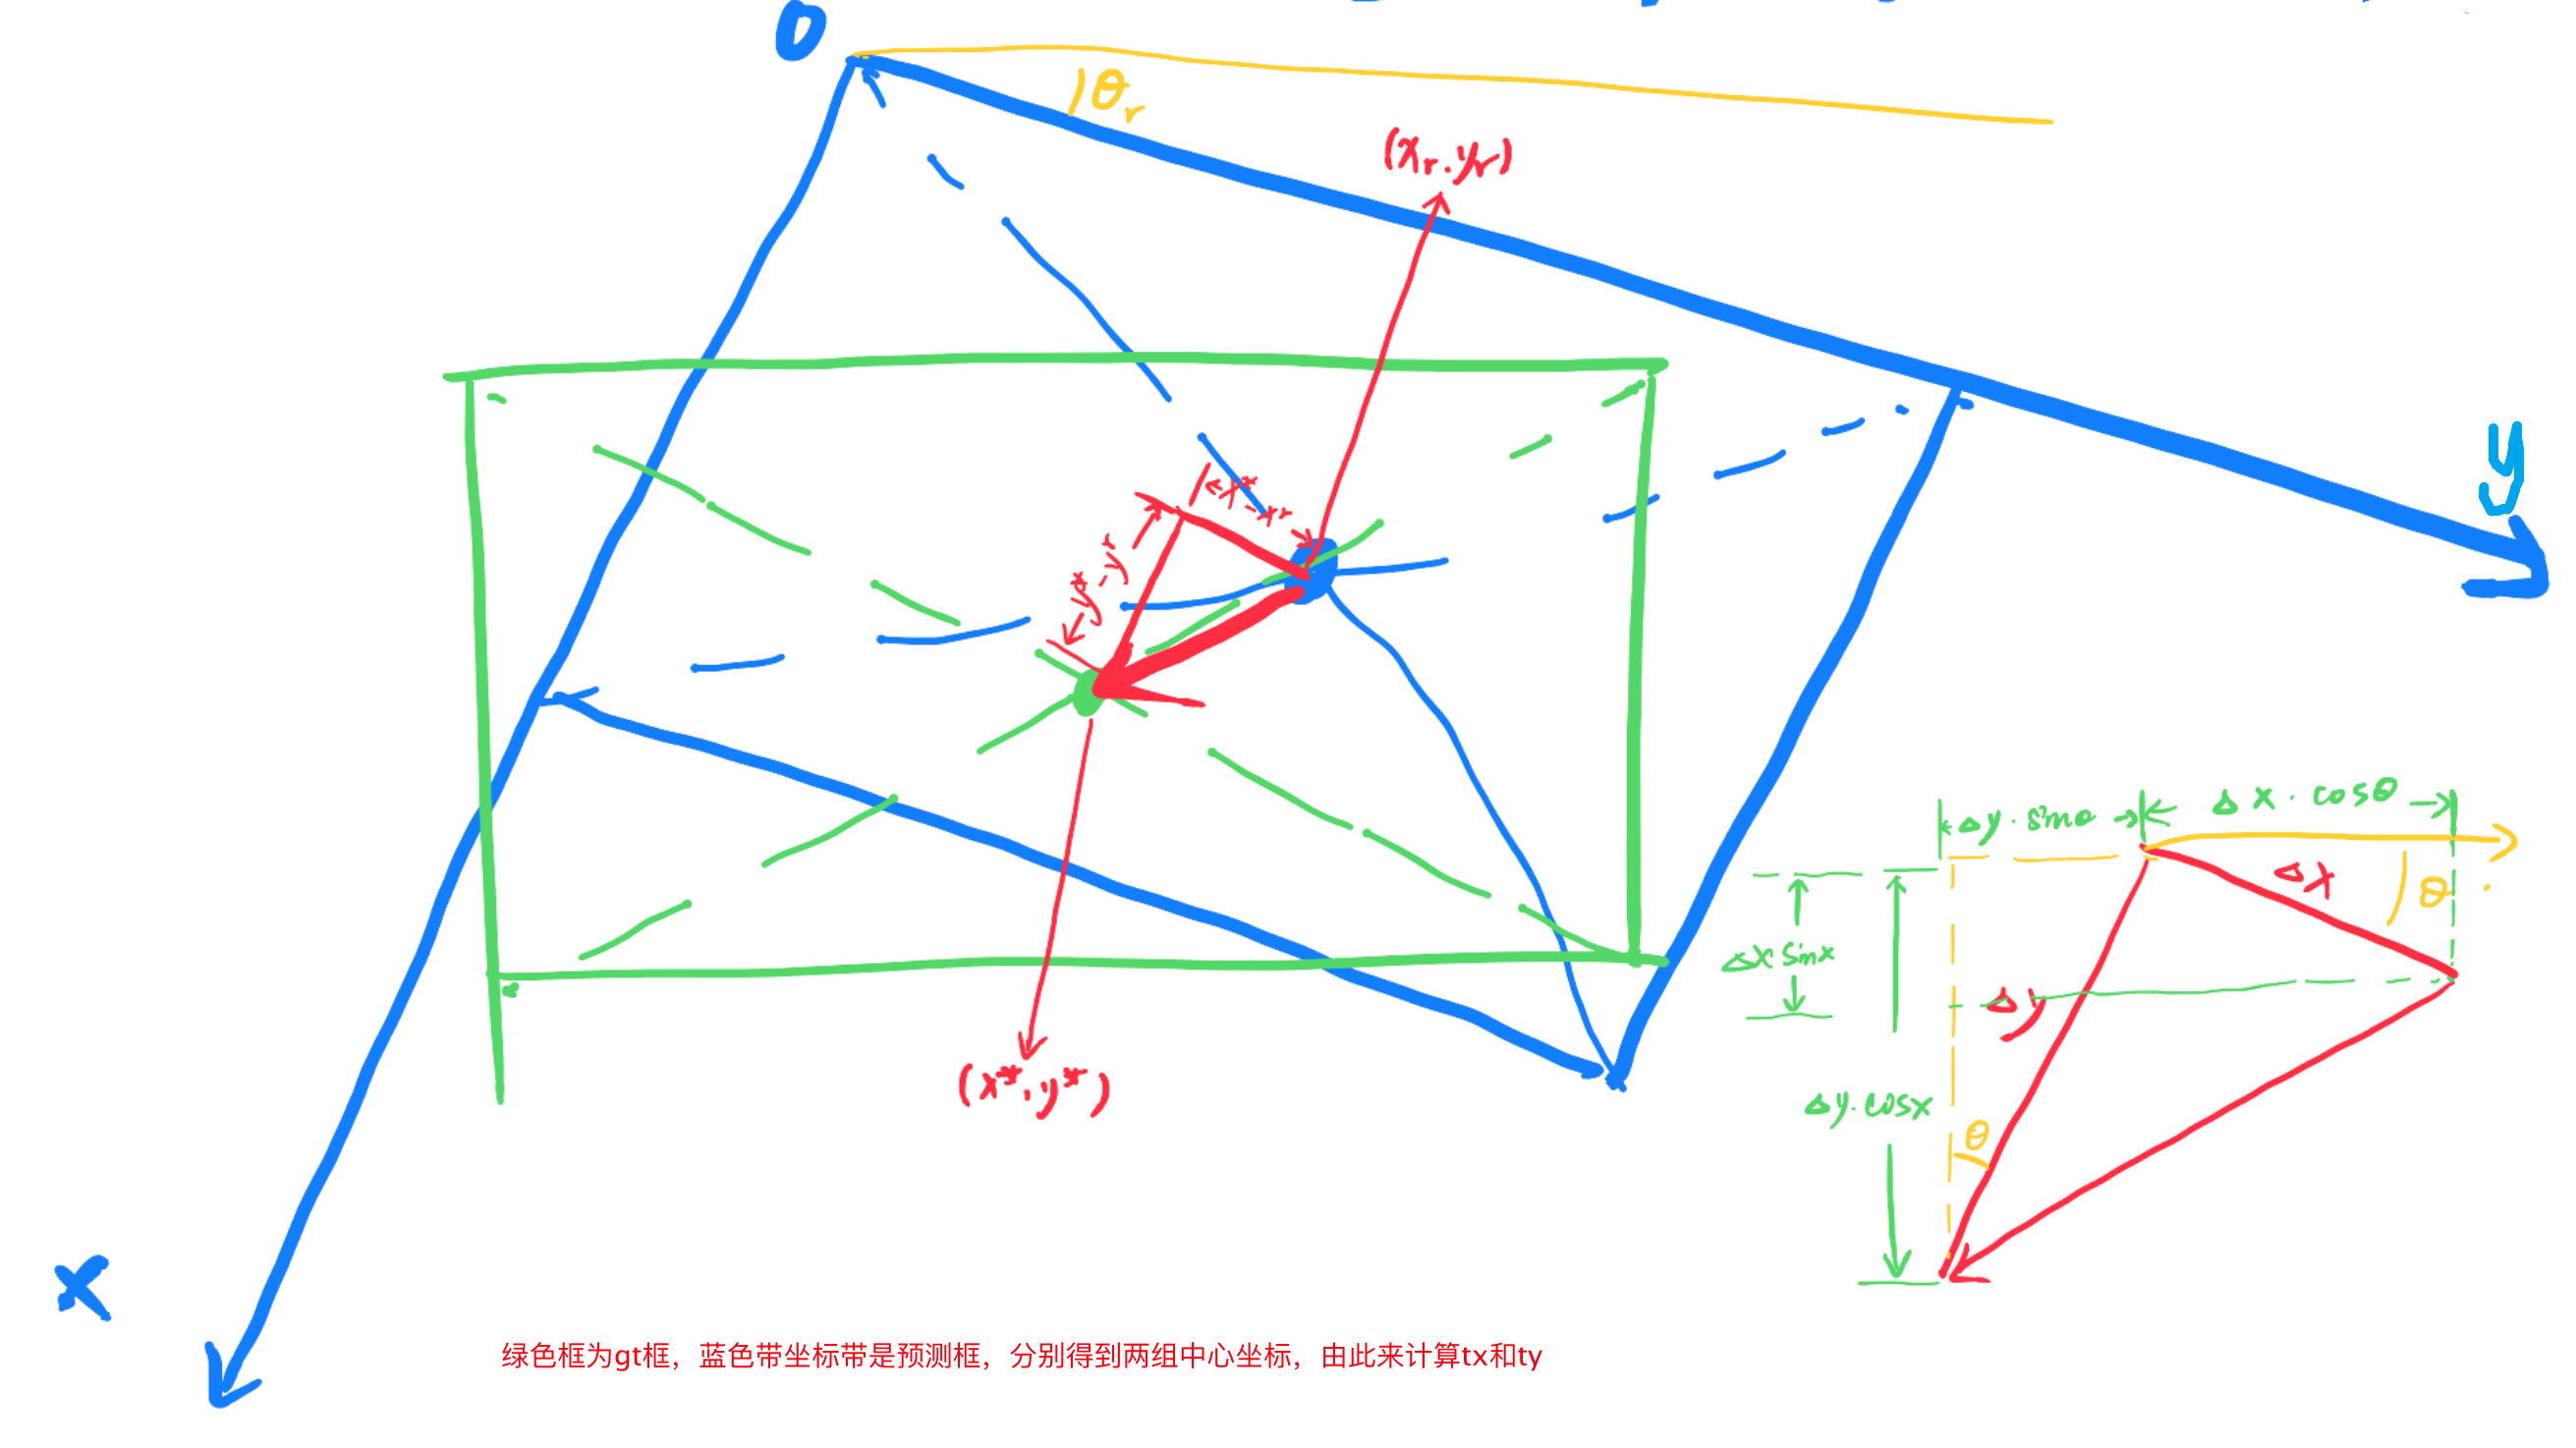 O
θr
(xr.yr)
y
x*-xr
y*-yr
Δy·sinθ
Δx·cosθ
Δx
θ
Δx sinx
Δy
Δy·cosx
θ
(x*.y*)
x
绿色框为gt框，蓝色带坐标带是预测框，分别得到两组中心坐标，由此来计算tx和ty